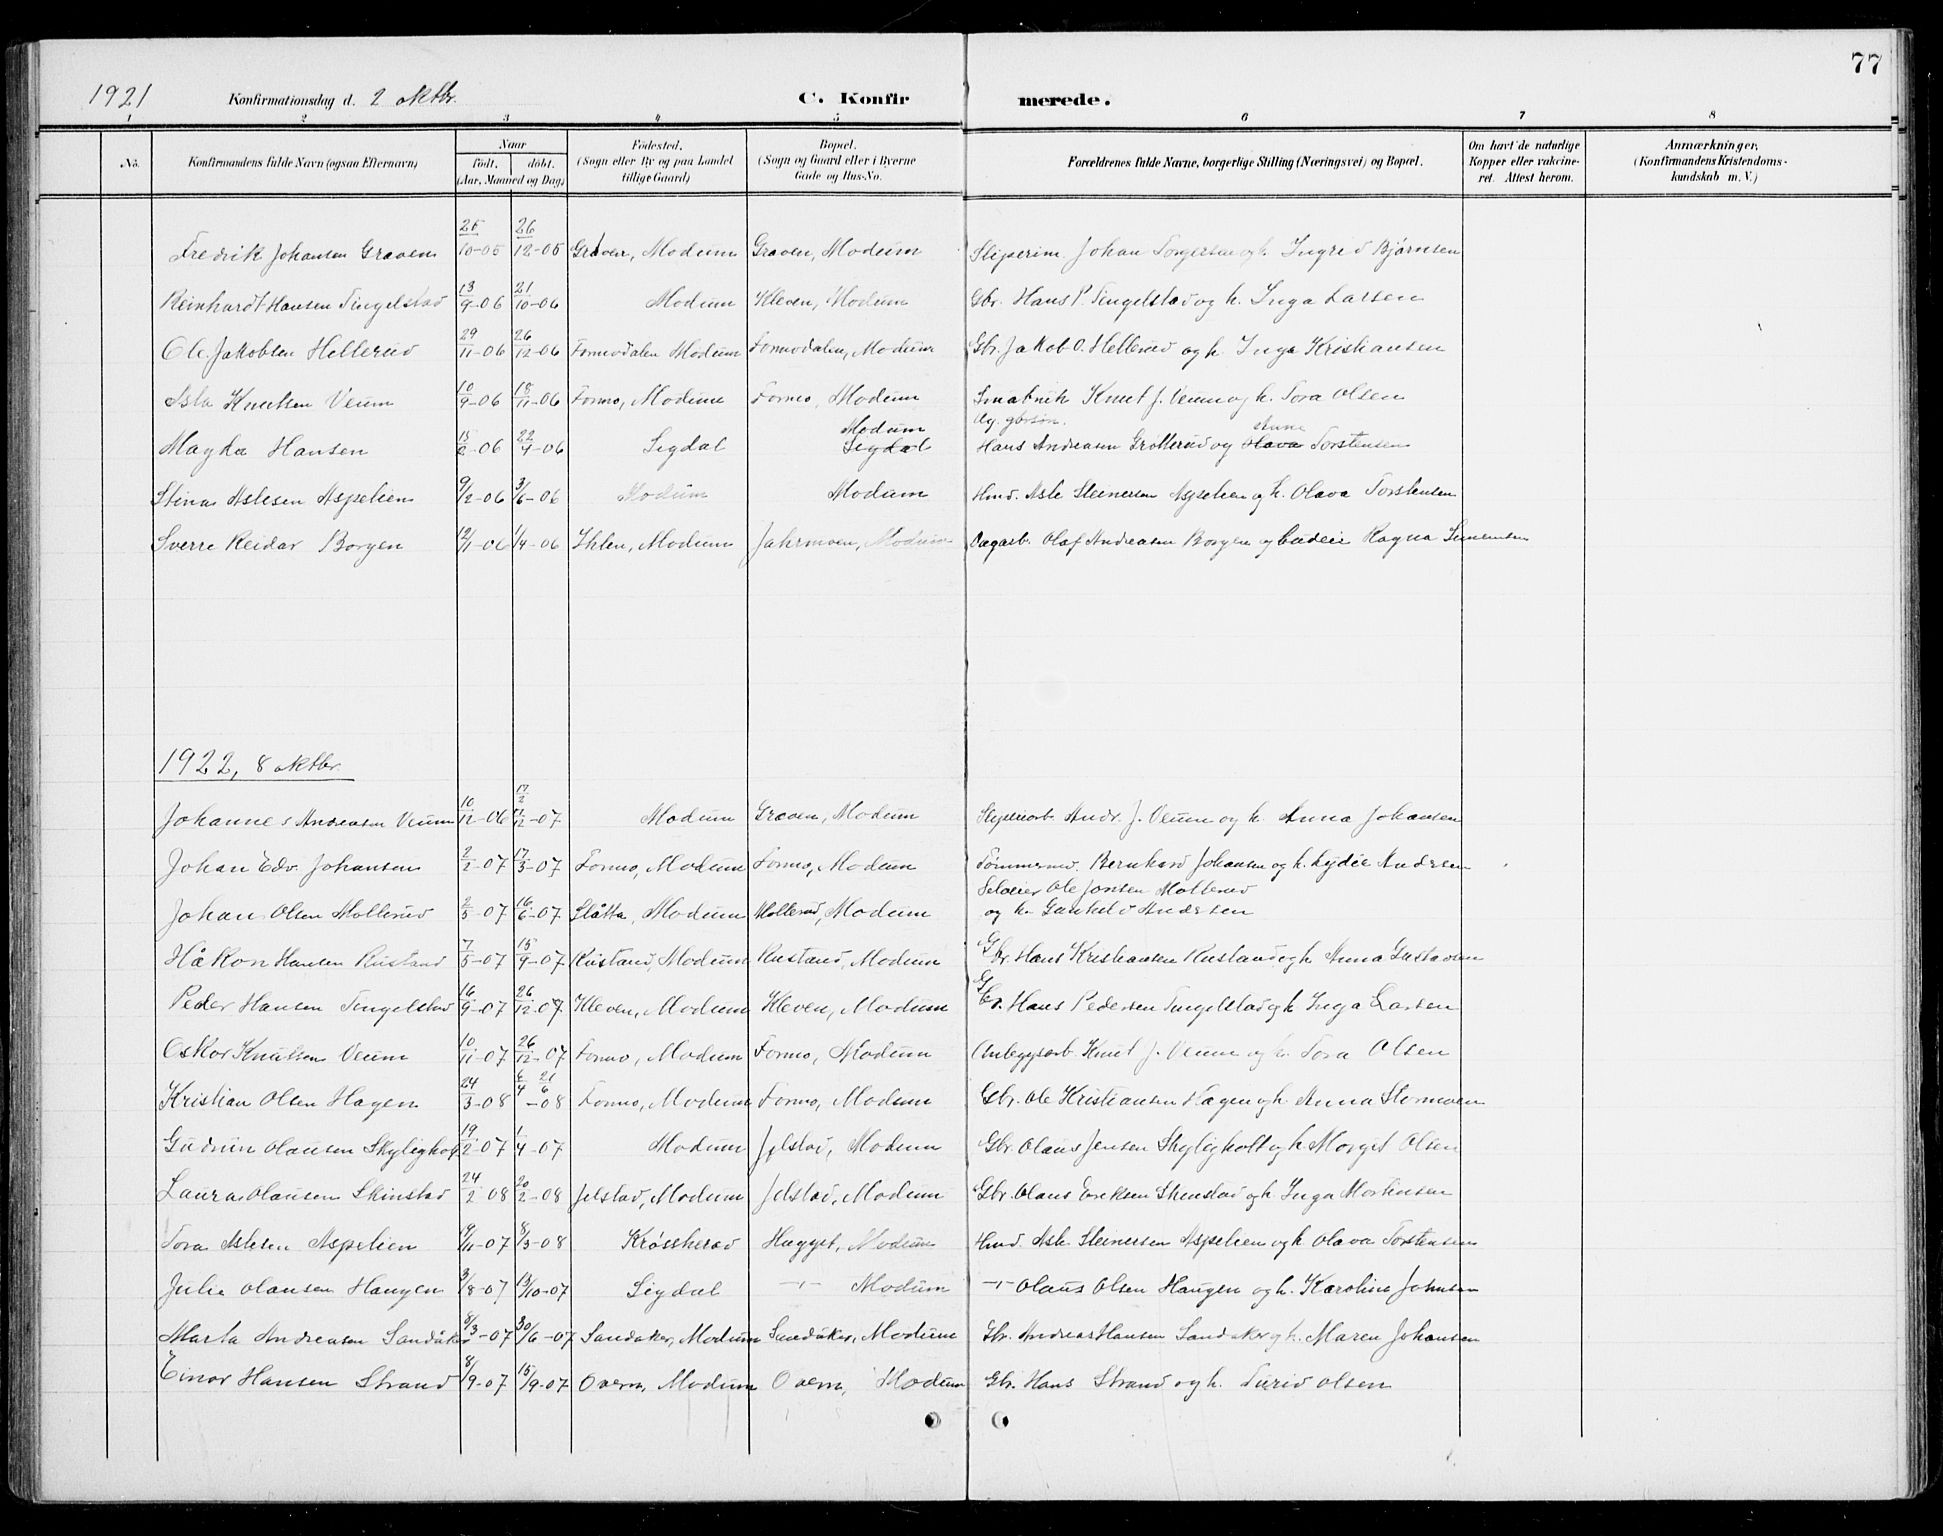 77
1921 Konfirmationsdag d. 2 oktbr. C. Konfirmerede.
1 2 3 4 5 6 7 8
No. Konfirmandens fulde Navn (ogsaa Efternavn) Naar født, døbt. (Aar, Maaned og Dag) Fødested. (Sogn eller By og paa Landet tillige Gaard) Bopæl. (Sogn og Gaard eller i Byerne Gade og Hus-No. Forældrenes fulde Navne, borgerlige Stilling (Næringsvei) og Bopæl. Om havt de naturlige Kopper eller vakcineret. Attest herom. Anmærkninger, (Konfirmandens Kristendomskundskab m. V.)
Fredrik Johansen Graven 25/10-05 26/12-05 Graven, Modum Graven, Modum Johan Torgersen og h. Ingrid Bjørnsen
Reinhardt Hansen Tingelstad 13/9-06 21/10-06 Modum Kleven, Modum Gbr. Hans P. Tingelstad og h. Inga Larsen
Ole Jakobsen Hellerud 29/11-06 26/12-06 Formodalen Modum Formodalen, Modum Gbr. Jakob O. Hellerud og h. Inga Kristiansen
Asta Knutsen Veum 10/9-06 18/11-06 Formo, Modum Formo, Modum Knut J. Veum og h. Tora Olsen
Magda Hansen 15/2-06 22/4-06 Sigdal Modum Sigdal Ug. gbrsøn. Hans Andreasen Grøtterud og Anne Olava Torstensen
Stina Aslesen Aspelien 9/2-06 3/6-06 Modum Modum Hmd. Asle Steinersen Aspelien og h. Olava Torstensen
Sverre Reidar Borgen 12/1-06 1/4-06 Ihlen, Modum Jahrmoen, Modum Dagarb. Olaf Andreasen Borgen og Ragna Simensen
1922, 8 oktbr.
Johannes Andreasen Veum 10/12-06 17/2 -07 Modum Graven, Modum Sliperiarb. Andr. J. Veum og h. Anna Johansen
Johan Edv. Johansen 2/2-07 17/3-07 Formo, Modum Formo, Modum Tømmermd. Bernhard Johansen og h. Lydie Andersen
Johan Olsen Møllerud 2/5-07 16/6-07 Slåtta, Modum Møllerud, Modum Selveier Ole Jonsen Møllerud
og h. Gunhild Andersen
Håkon Hansen Rustand 7/5-07 15/9-07 Rustand, Modum Rustand, Modum Gbr. Hans Kristiansen Rustand og h Anna Gustavsen
Peder Hansen Tingelstad 16/9-07 26/12-07 Kleven, Modum Kleven, Modum Gbr. Hans Pedersen Tingelstad og h Inga Larsen
Oskar Knutsen Veum 10/11-07 26/12-07 Formo, Modum Formo, Modum Anlegsarb. Knut J. Veum og h. Tora Olsen
Kristian Olsen Hagen 24/3-08 6/4 21/6 -08 Formo, Modum Formo, Modum Gbr. Ole Kristiansen Hagen og h. Anna Stormoen
Gudrun Olausen Skyligholt 19/2-07 1/4-07 Modum Jelstad, Modum Gbr. Olaus Jensen Skyligholt og h. Marget Olsen
Laura Olausen Skinstad 24/2 08 20/2-08 Jelstad, Modum Jelstad, Modum Gbr. Olaus Eriksen Skinstad og h. Inga Markusen
Tora Aslesen Aspelien 19/11-07 8/3-08 Krøssherad Hagget, Modum Hmd. Asle Steinersen Aspelien og h. Olava Torstensen
Julie Olausen Haugen 3/8-07 13/10-07 Sigdal -"- Modum -"- Olaus Olsen Haugen og h. Karoline Johnsen
Marta Andreasen Sandåker 8/3-07 30/6-07 Sandåker, Modum Sandåker, Modum Gbr. Andreas Hansen Sandåker og h. Maren Johansen
Einar Hansen Strand 8/9-07 15/9-07 Overn, Modum Overn, Modum Gbr. Hans Strand og h. Turid Olsen